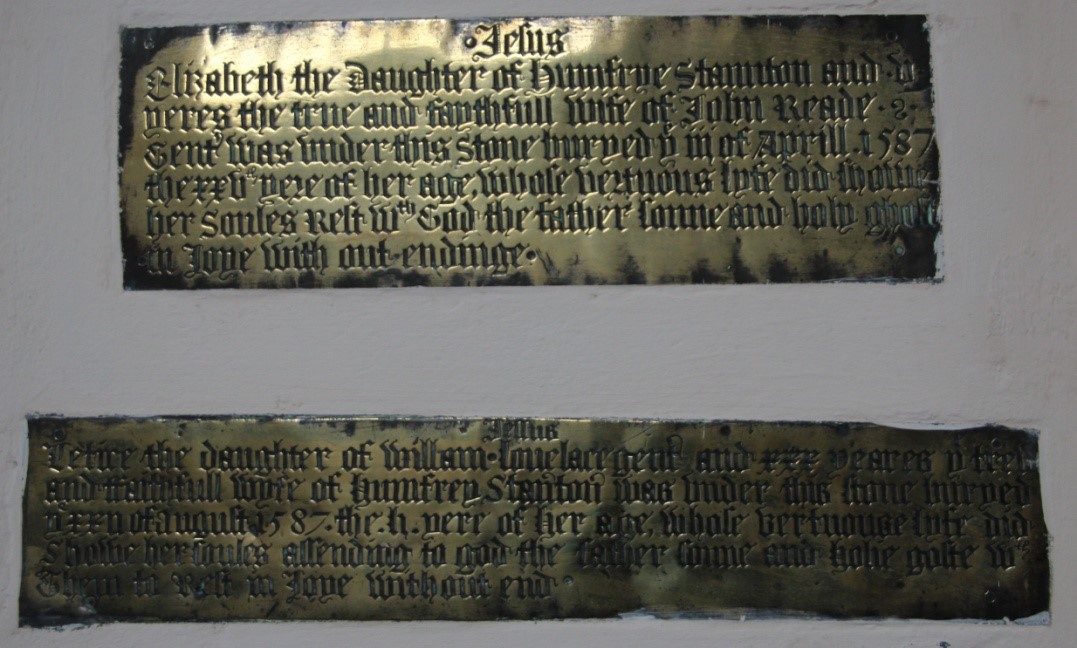 Jesus
Elizabeth the Daughter of Humfrye Staunton and vj
yeres the true and faythfull wife of John Reade
Gent was vnder this Stone buryed yͤ iij of Aprill 1587
the xxvij yere of her age, whose vertuous lyfe did showe
her Soules Rest wᵗʰ God the father sonne and holy ghost
in Joye with out endinge
Jessus
Letice the daughter of willam Louelace gent and xxx yeares yͤ trew
and ffaithfull wyfe of humfrey Stanton was vnder this stone buryed
yͤ xxii of august 1587. the .li. yere of her age, whose vertuouse lyfe did
Showe her soules assending to god the father sonne and holie goste wᵗʰ
Them to Rest in Joye without end